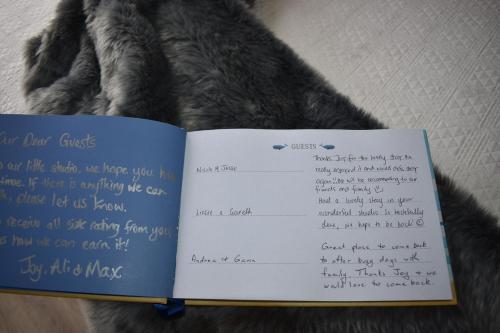 Our Dear Guests
our little studio. we hope you had
time. If there is anything we can
please let us know.
receive all 5★ rating from you
how we can earn it!
Joy, Ali & Max
GUESTS
Thanks Joy for the lovely stay. We
really enjoyed it and would
again!! We will be recommending to our
friends and family
Lizzie & Gareth
Had a lovely stay in your
wonderful studio is beautifully
done, we hope to be back ☺
Great place to come back
to after busy days with
family. Thanks Joy & we
would love to come back.